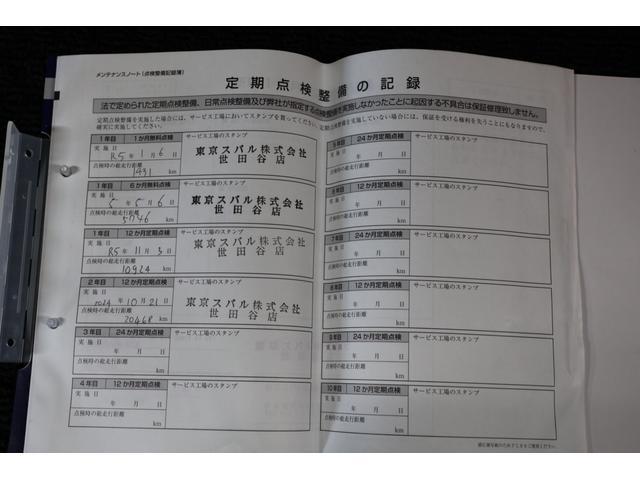 メンテナンスノート(点検整備記録簿)
定期点検整備の記録
法で定められた定期点検整備、日常点検整備及び弊社が指定する点検整備を実施しなかったことに起因する不具合は保証修理致しません。
定期点検整備を実施した場合には、サービス工場においてスタンプを取ってください。定期点検整備を実施していない場合には、保証を受ける権利を失うこともなりますので、
確実に実施してください。
1年目 1か月無料点検 サービス工場のスタンプ
実施日
R5年 1月 6日
点検時の総走行距離
1931 km
東京スバル株式会社
世田谷店
1年目 6か月無料点検 サービス工場のスタンプ
実施日
5年 5月 6日
点検時の総走行距離
5746 km
東京スバル株式会社
世田谷店
1年目 12か月定期点検 サービス工場のスタンプ
実施日
R5年 11月 3日
点検時の総走行距離
10924 km
東京スバル株式会社
世田谷店
2年目 12か月定期点検 サービス工場のスタンプ
実施日
2024年 10月 21日
点検時の総走行距離
20468 km
東京スバル株式会社
世田谷店
3年目 24か月定期点検 サービス工場のスタンプ
実施日
年 月 日
点検時の総走行距離
km
4年目 12か月定期点検 サービス工場のスタンプ
実施日
年 月 日
点検時の総走行距離
km
5年目 24か月定期点検 サービス工場のスタンプ
実施日
年 月 日
点検時の総走行距離
km
6年目 12か月定期点検 サービス工場のスタンプ
実施日
年 月 日
点検時の総走行距離
km
7年目 24か月定期点検 サービス工場のスタンプ
実施日
年 月 日
点検時の総走行距離
km
8年目 12か月定期点検 サービス工場のスタンプ
実施日
年 月 日
点検時の総走行距離
km
9年目 24か月定期点検 サービス工場のスタンプ
実施日
年 月 日
点検時の総走行距離
km
10年目 12か月定期点検 サービス工場のスタンプ
実施日
年 月 日
点検時の総走行距離
km